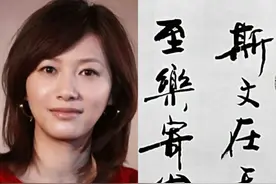 斯文在
至樂寄